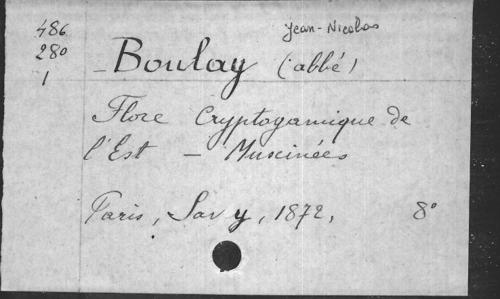 486 Jean-Nicolas
280 - Boulay (abbé)
1
Flore Cryptogamique de
l'Est - Muscinées
Paris, Savy, 1872, 8°